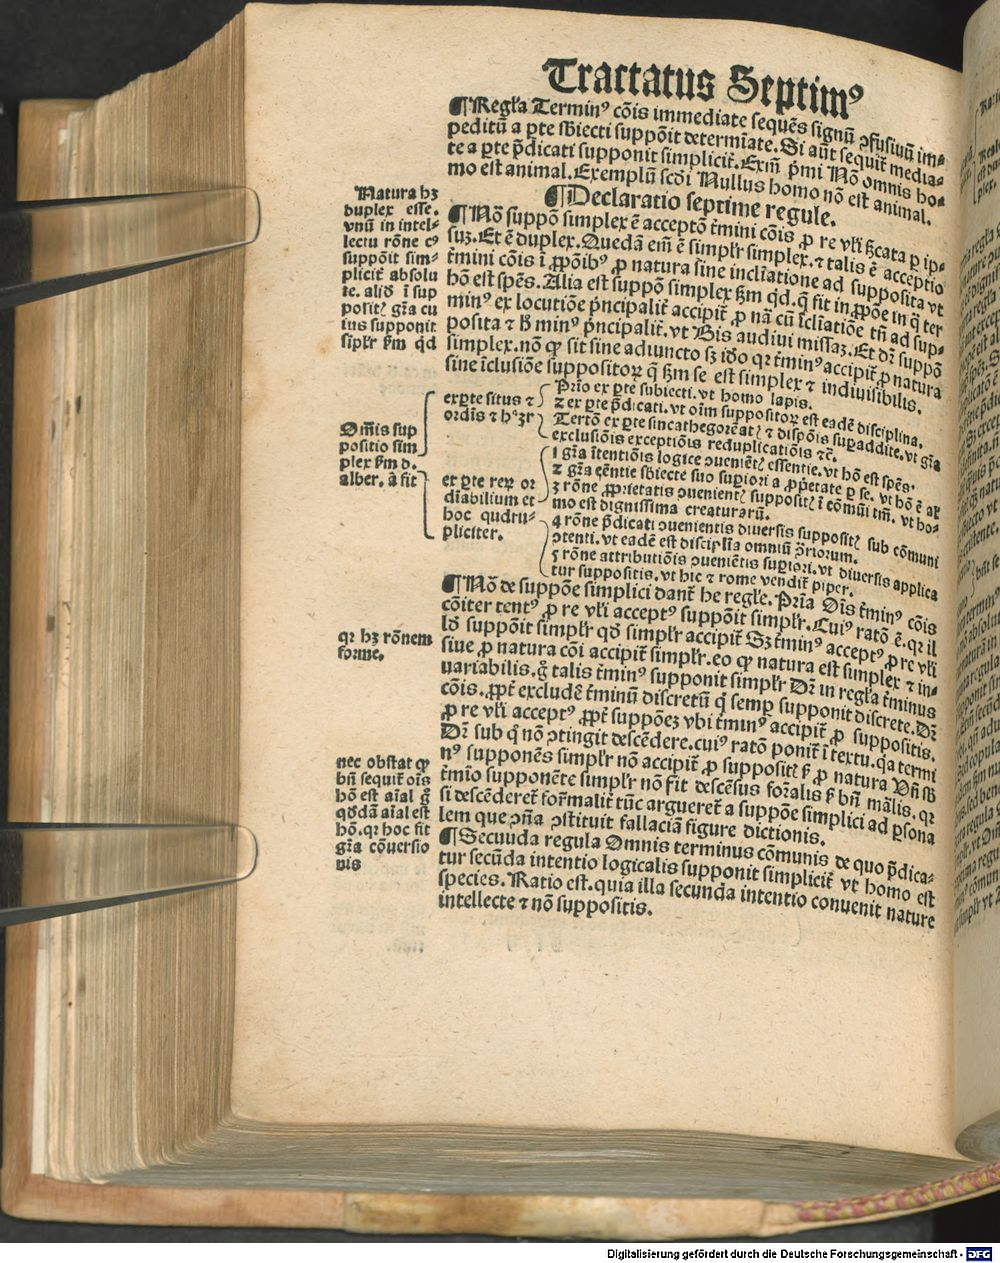 Tractatus Septimꝰ
¶ Regl̃a Terminꝰ cõis immediate sequẽs signũ ꝯfusiuũ im⸗
peditũ a ꝑte sbiecti suppõit determĩate. Si aũt sequit᷑ media⸗
te a ꝑte p̃dicati supponit simplicit᷑. Exm̃ p̃mi Nõ omnis ho⸗
mo est animal. Exemplũ scdi Nullus homo nõ est animal.
¶ Declaratio septime regule.
¶ Nõ suppõ simplex ẽ acceptõ t᷑mini cõis ꝓ re vl̃i
suꝫ. Et ẽ duplex. Quedã em̃ ẽ simpl̃r simplex. ⁊ talis ẽ acceptio
t᷑mini cõis ĩ ꝓpõibꝰ ꝓ natura sine inclĩatione ad supposita vt
hõ est spẽs. Alia est suppõ simplex ẞm qd. q̃ fit in ꝓpõe in q̃ ter
minꝰ ex locutiõe p̃ncipalit᷑ accipit᷑ ꝓ nã cũ ĩclĩatiõe tñ ad sup⸗
posita ⁊ minꝰ p̃ncipalit᷑. vt Bis audiui missaꝫ. Et dr̃ suppõ
simplex. nõ ꝙ sit sine adiuncto sꝫ iõ qꝛ t᷑minꝰ accipit᷑ ꝓ natura
sine ĩclusiõe suppositoꝝ q̃ ẞm se est simplex ⁊ indiuisibilis.
Natura hꝫ
duplex esse.
vnũ in intel⸗
lectu rõne cꝰ
suppõit sim⸗
plicit᷑ absolu
te. aliđ ĩ sup
positꝭ gr̃a cu
ius supponit
sĩpl̃r ẞm qđ
Om̃is sup
positio sim
plex ẞm d.
alber. ã fit
ex ꝑte situs ⁊
ordĩs ⁊
Prĩo ex ꝑte subiecti. vt homo lapis.
2 ex ꝑte p̃dicati. vt oĩm suppositoꝝ est eadẽ disciplina.
Tertõ ex ꝑte sincathegoreãtꝭ ⁊ dispõis suꝑaddite. vt gr̃a
exclusiõis exceptiõis reduplicatiõis ⁊c̃.
ex ꝑte reꝝ or
dĩabilium et
hoc qudru⸗
pliciter.
1 gr̃a ĩtentiõis logice ꝯueniẽtꝭ essentie. vt hõ est spẽs.
2 gr̃a eẽntie sbiecte suo suꝑiori a ꝓp̃etate ꝑ se. vt hõ ẽ
3 rõne ꝓprietatis ꝯuenientꝭ suppositꝭ ĩ cõmũi tm̃. vt ho⸗
mo est dignissima creaturarũ.
4 rõne p̃dicati ꝯuenientis diuersis suppositꝭ sub cõmuni
ꝯtenti. vt eadẽ est disciplĩa omniũ ꝯ̃rioruм.
5 rõne attributiõis ꝯueniẽtis suꝑiori. vt diuersis applica
tur suppositis. vt hic ⁊ rome vendit᷑ piper.
¶ Nõ de suppõe simplici dant᷑ he regl̃e. Prĩa Oĩs t᷑minꝰ cõis
cõiter tentꝰ ꝓ re vl̃i acceptꝰ suppõit simpl̃r. Cuiꝰ ratõ ẽ. qꝛ il
lđ suppõit simpl̃r qđ simpl̃r accipit᷑ Sꝫ t᷑minꝰ acceptꝰ ꝓ re vl̃i
siue ꝓ natura cõi accipit᷑ simpl̃r. eo ꝙ natura est simplex ⁊ in⸗
uariabilis. g̃ talis t᷑minꝰ supponit simpl̃r Dr̃ in regl̃a t᷑minus
cõis. ꝓpt᷑ excludẽ t᷑minũ discretũ q̃ semꝑ supponit discrete. Dr̃
ꝓ re vl̃i acceptꝰ ꝓpt᷑ suppõeꝫ vbi t᷑minꝰ accipit᷑ ꝓ suppositis.
Dr̃ sub q̃ nõ ꝯtingit descẽdere. cuiꝰ ratõ ponit᷑ ĩ textu. q̃a termi
nꝰ supponẽs simpl̃r nõ accipit᷑ ꝓ suppositꝭ ẞ ꝓ natura Vñ sb
t᷑mĩo supponẽte simpl̃r nõ fit descẽsus for̃alis ẞ bñ mãlis. qꝛ
si descẽderet᷑ for̃malit᷑ tũc argueret᷑ a suppõe simplici ad ꝑsona
lem que ꝯñа ꝯstituit fallaciã figure dictionis.
qꝛ hꝫ rõnem
forme.
nec obstat ꝙ
bñ sequit᷑ oĩs
hõ est aĩal g̃
qđdã aĩal est
hõ. qꝛ hoc fit
gr̃a cõuersio
nis
¶ Secuuda regula Omnis terminus cõmunis de quo p̃dica⸗
tur secũda intentio logicalis supponit simplicit᷑ vt homo est
species. Ratio est. quia illa secunda intentio conuenit nature
intellecte ⁊ nõ suppositis.
Digitalisierung gefördert durch die Deutsche Forschungsgemeinschaft - DFG